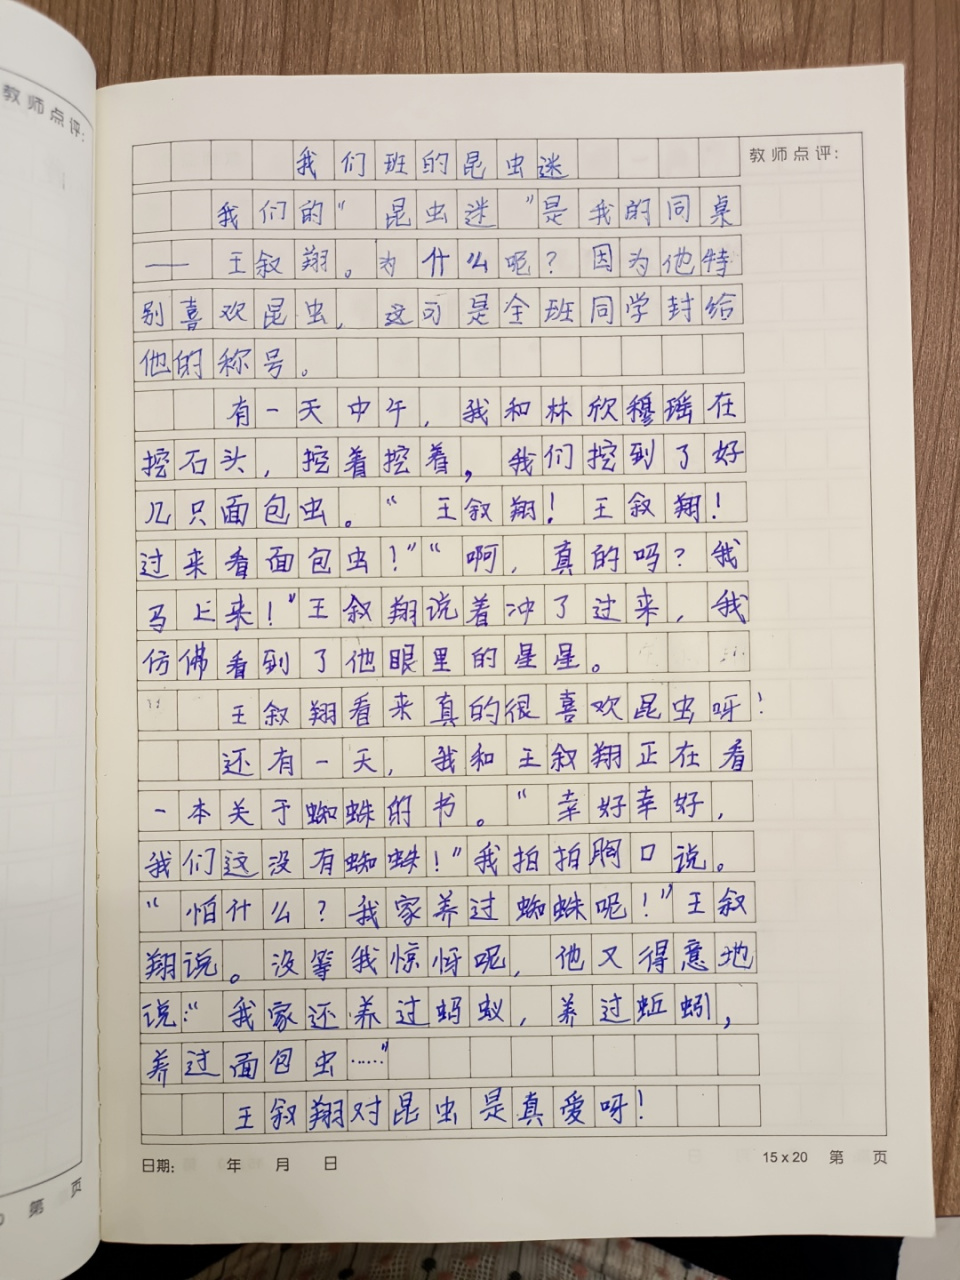 教师点评：
我们班的昆虫迷
教师点评：
我们的“昆虫迷”是我的同桌
——王叙翔。为什么呢？因为他特
别喜欢昆虫，这可是全班同学封给
他的称号。
有一天中午，我和林欣穆瑶在
挖石头，挖着挖着，我们挖到了好
几只面包虫。“王叙翔！王叙翔！
过来看面包虫！”“啊，真的吗？我
马上来！”王叙翔说着冲了过来，我
仿佛看到了他眼里的星星。
王叙翔看来真的很喜欢昆虫呀！
还有一天，我和王叙翔正在看
一本关于蜘蛛的书。“幸好幸好，
我们这没有蜘蛛！”我拍拍胸口说。
“怕什么？我家养过蜘蛛呢！”王叙
翔说。没等我惊讶呢，他又得意地
说：“我家还养过蚂蚁，养过蚯蚓，
养过面包虫……”
王叙翔对昆虫是真爱呀！
日期： 年 月 日
15×20 第 页
第 页